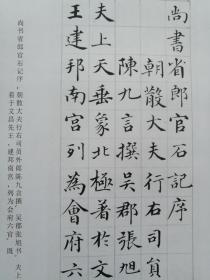 尚書省郎官石記序
朝散大夫行右司員
陳九言撰吳郡張旭
夫上天垂象北極著於文
王建邦南宮列為會府六
尚书省郎官石记序,朝散大夫行右司员外郎陈九言撰,吴郡张旭书。夫上
着于文昌先王,建邦南宫,列为会府六官,既